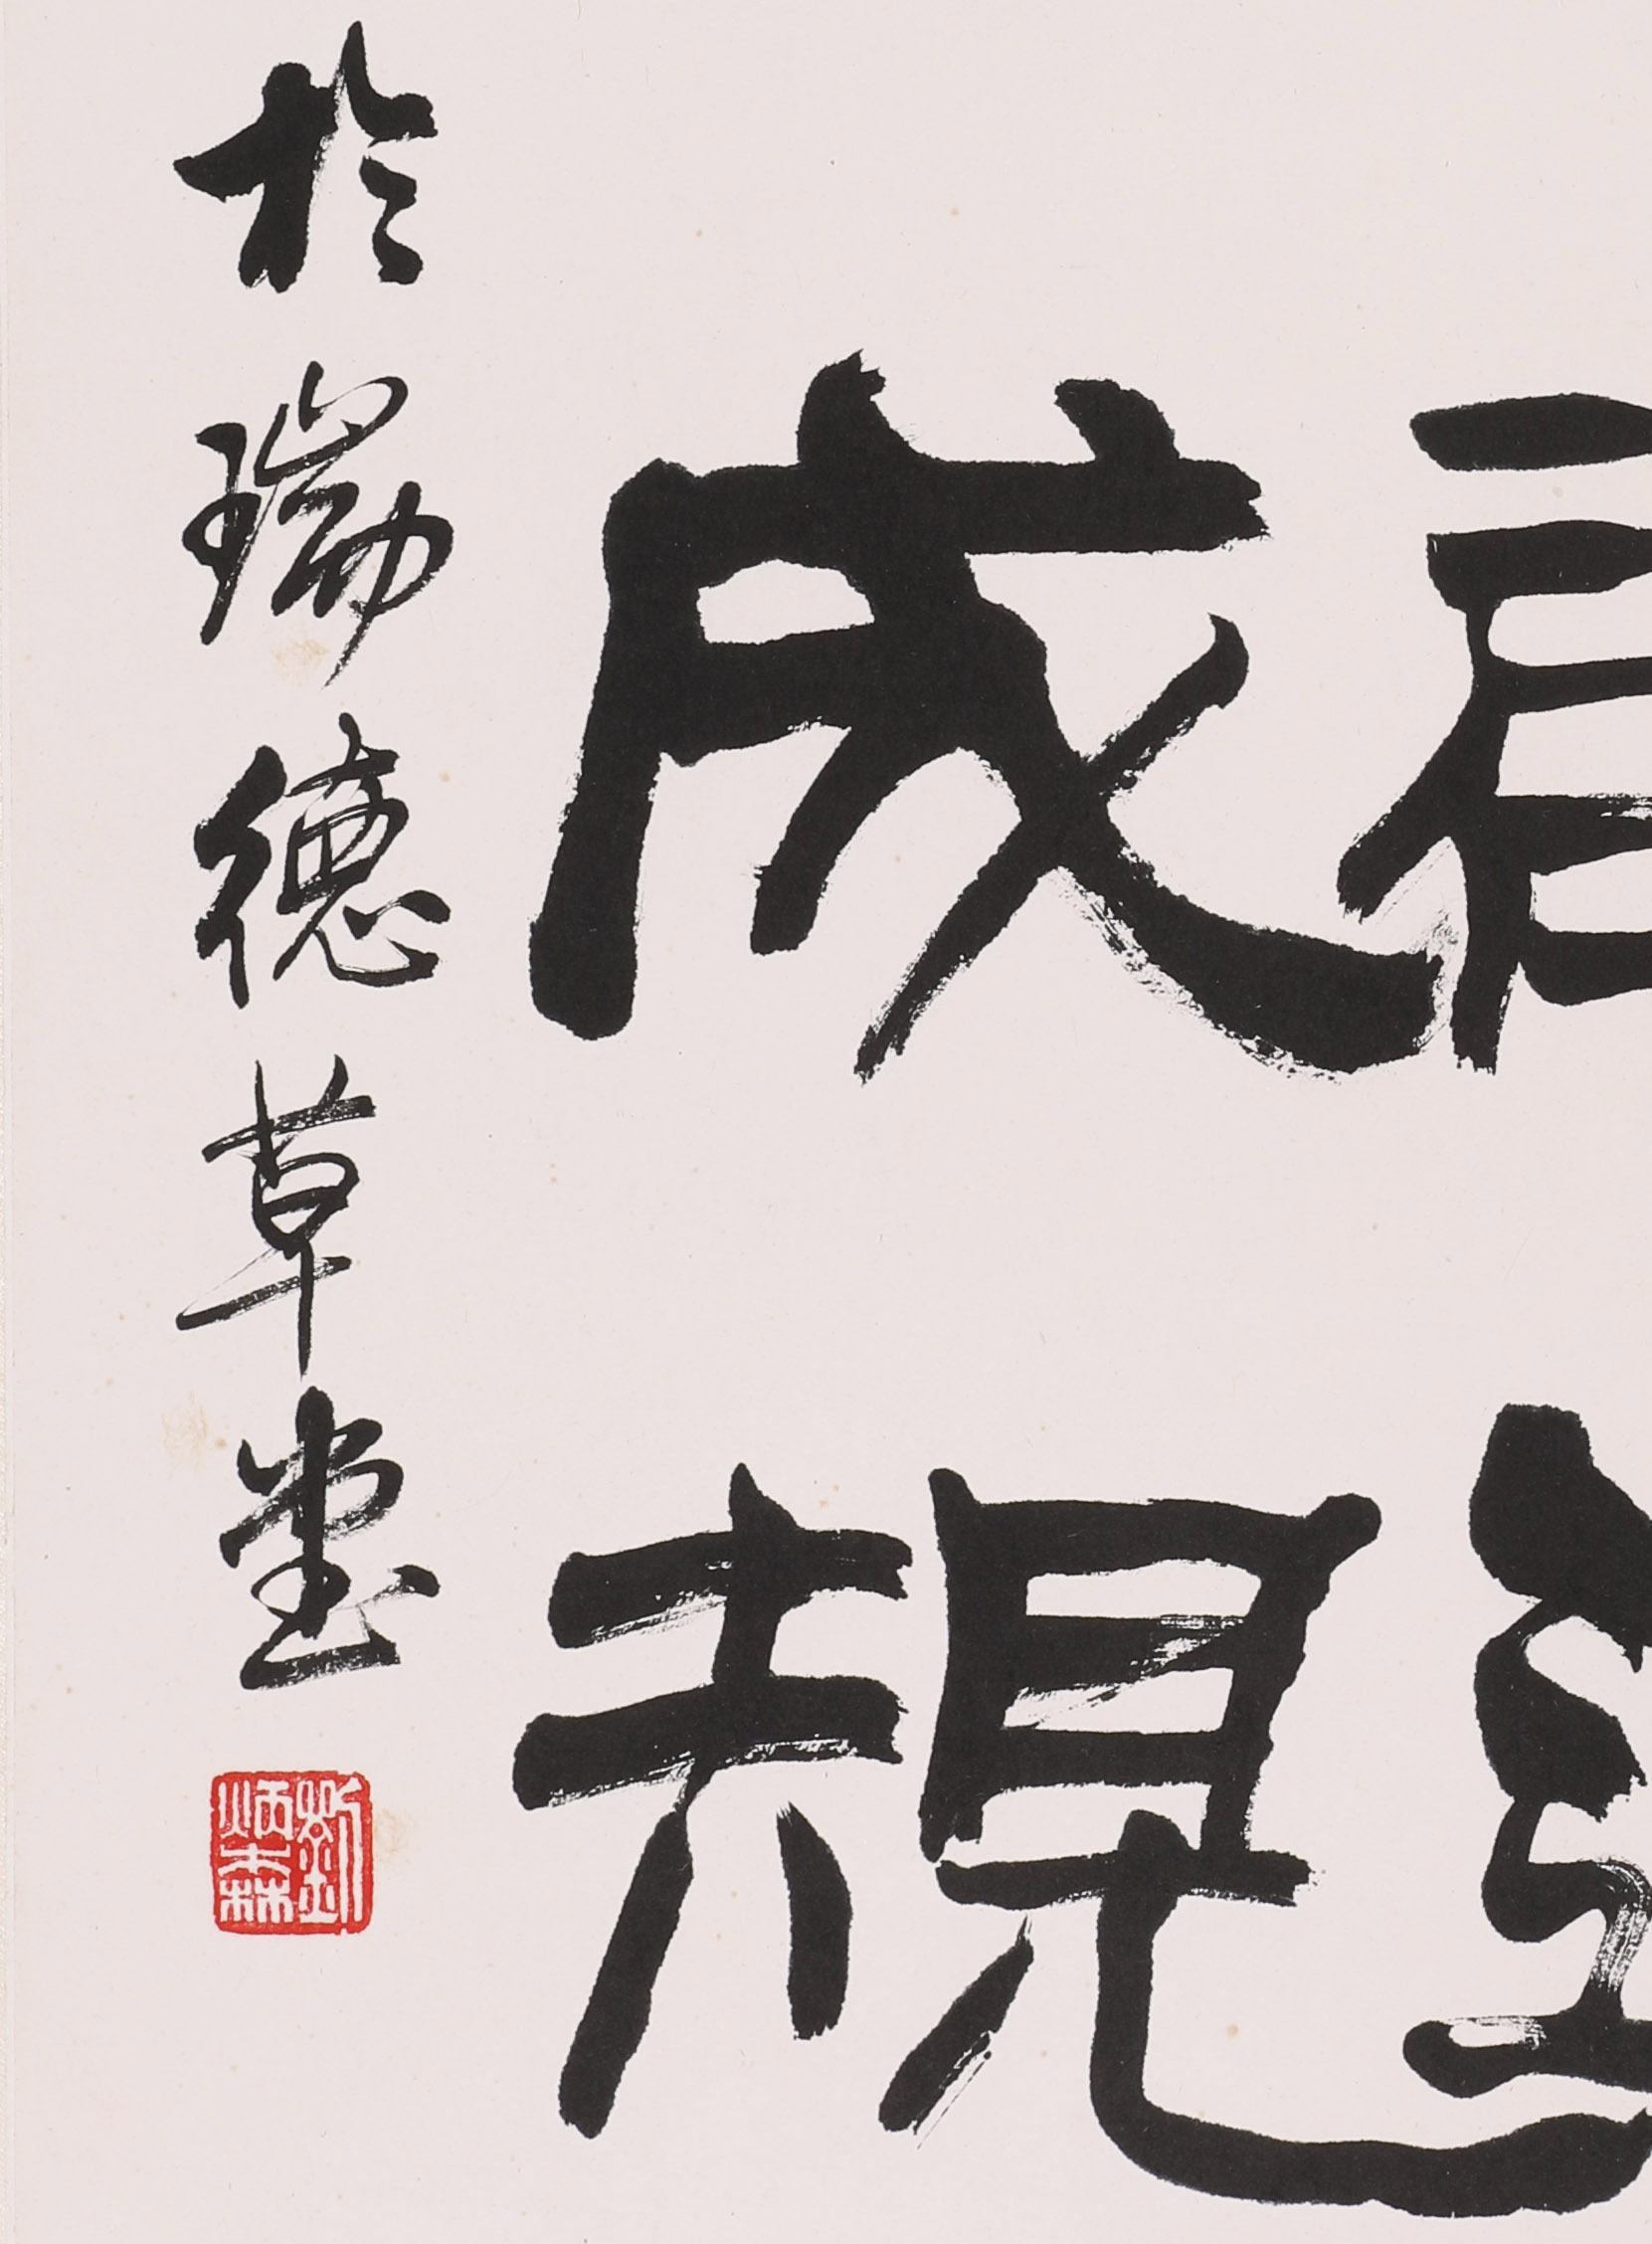 成規
於瑞德草堂
劉
炳森